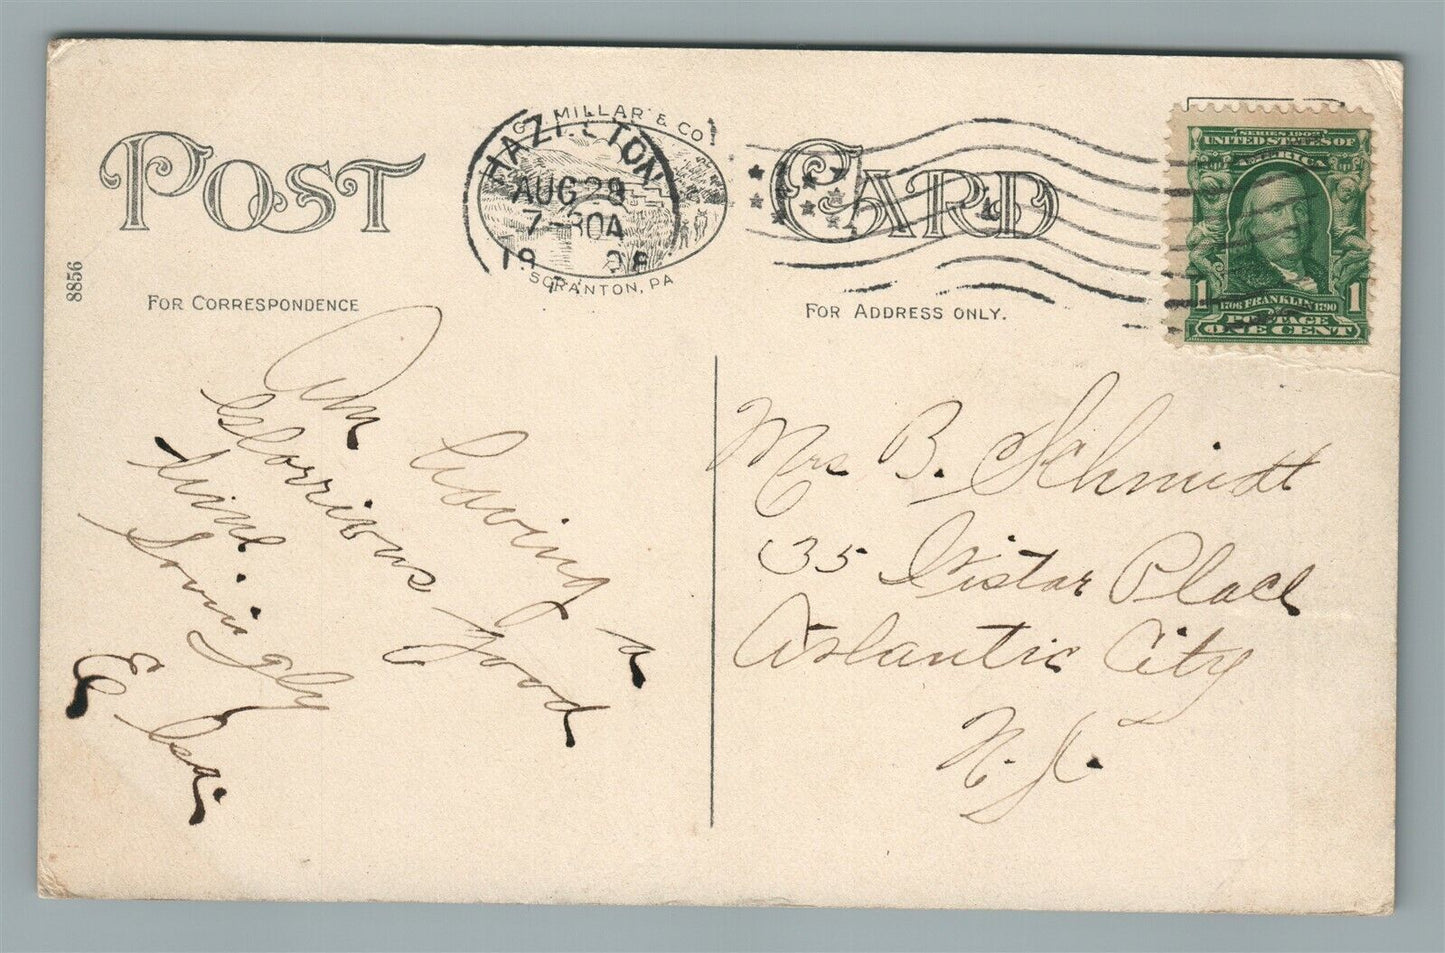 POST CARD
G. MILLAR & CO.
SCRANTON, PA
HAZLETON
AUG 29
7-30A
1908
SERIES 1902
UNITED STATES OF AMERICA
1706 FRANKLIN 1790
POSTAGE
1 ONE CENT 1
8856
FOR CORRESPONDENCE
FOR ADDRESS ONLY.
Am having a
Glorrious good
time
Lovingly
Elsa.
Mrs B. Schmidt
35 Wistar Place
Atlantic City
N.J.